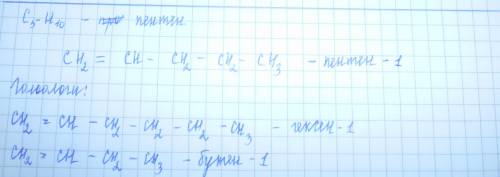 C₅H₁₀ - пентен
CH₂ = CH - CH₂ - CH₂ - CH₃ - пентен - 1
Гомологи:
CH₂ = CH - CH₂ - CH₂ - CH₂ - CH₃ - гексен-1
CH₂ = CH - CH₂ - CH₃ - бутен - 1